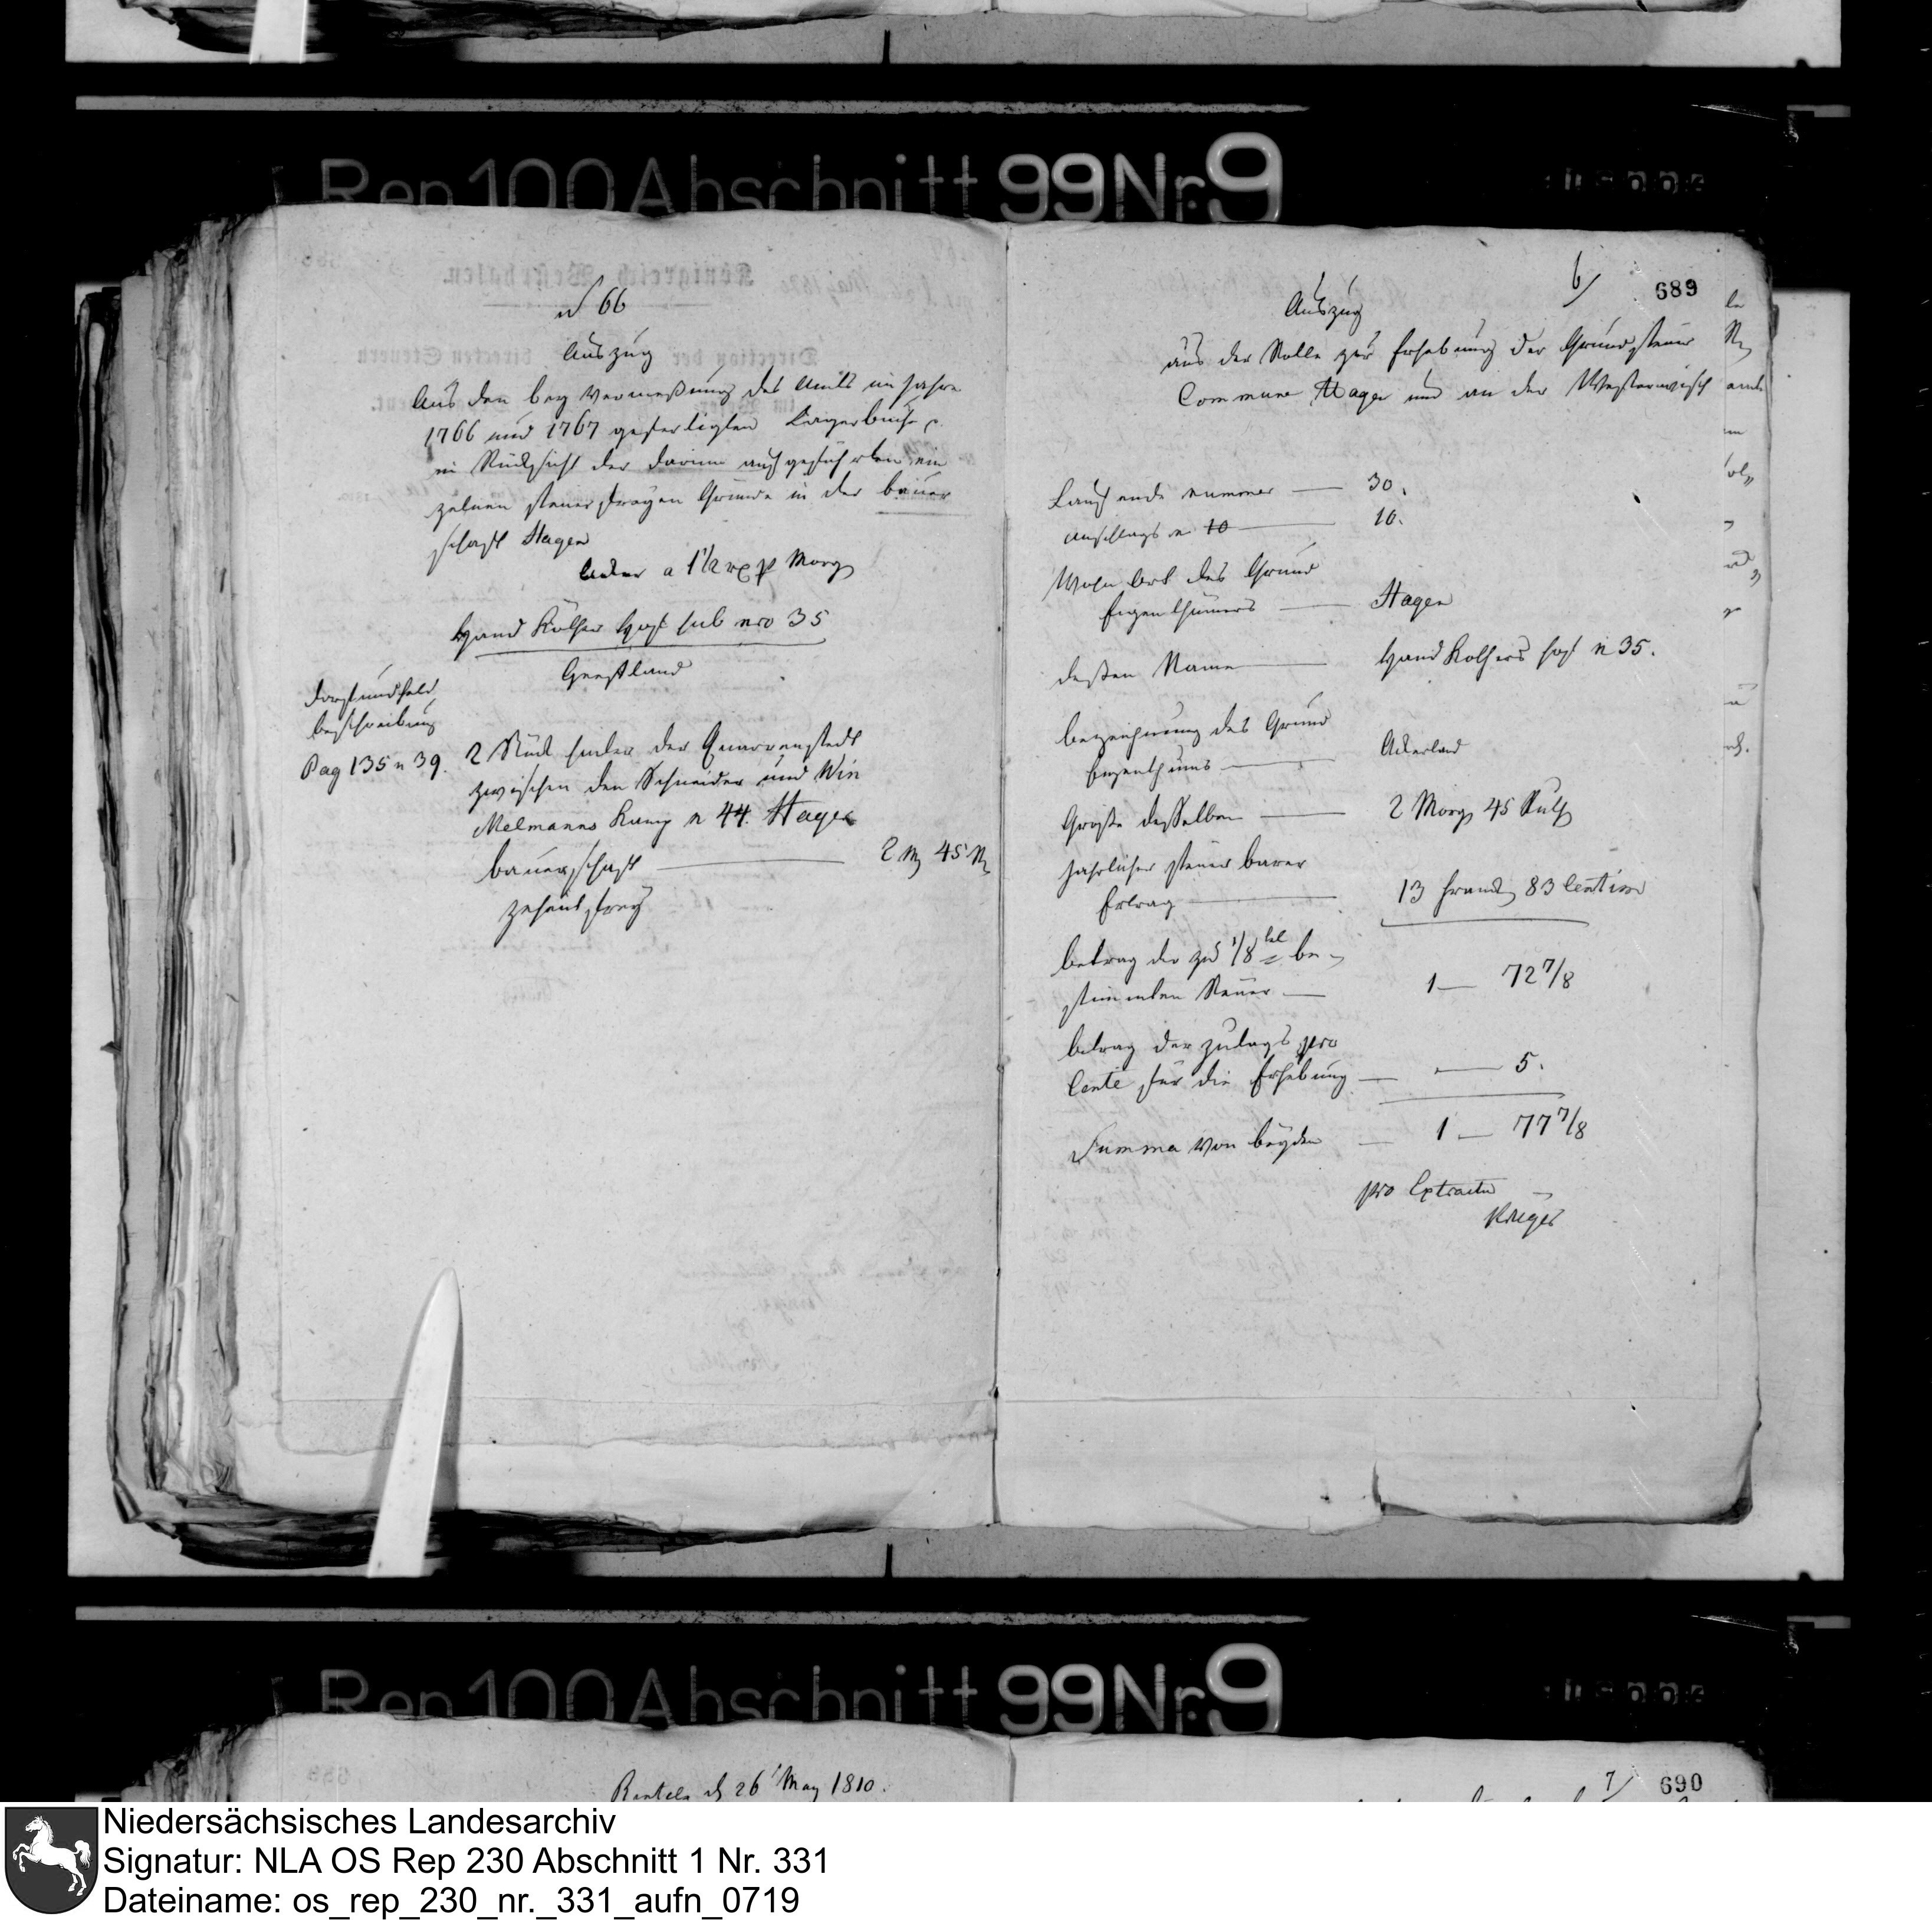 Rep 100 Abschnitt 99 Nr. 9
N 66
Auszug
Aus den bey Vermeßung des Amts im Jahre
1766 und 1767 gefertigten Lagerbuche
in Rücksicht der darinn aufgeführten ein
zelnen steuerfreyen Gründe in der Bauer
schaft Hagen
Morg
Hand Köther Hof sub nro 35
Geestland
Dorf und Feld
beschreibung
Pag 135 n 39.
2 Stück hinter der Quarrenstedt
zwischen den Schneider und Win
Melmanns Kamp n 44. Hager
bauerschaft — 2 M 45 R
zehentfrey
6/
689
Auszug
aus der Rolle zur Erhebung der Grundsteuer
Commune Hagen und an der Westerwisch
Laufende Nummer — 30.
Anschlags n 10 — 10.
Wohnort des Grund
Eigenthümers — Hagen
deßen Name — Hand Kothers Hof n 35.
Bezeichnung des Grund
Eigenthums — Ackerland
Größe desselben — 2 Morg 45 Ruth
Jährlicher steuerbarer
Ertrag — 13 Frank 83 Centime
Betrag der zu 1/8tel be-
stimmten Steuer — 1 — 72 7/8
Betrag der Zulags pro
Cente für die Erhebung — — 5.
Summa von beyden — 1 — 77 7/8
pro Extractu
Rep 100 Abschnitt 99 Nr. 9
Rinteln d 26 May 1810.
7/
690
Niedersächsisches Landesarchiv
Signatur: NLA OS Rep 230 Abschnitt 1 Nr. 331
Dateiname: os_rep_230_nr._331_aufn_0719